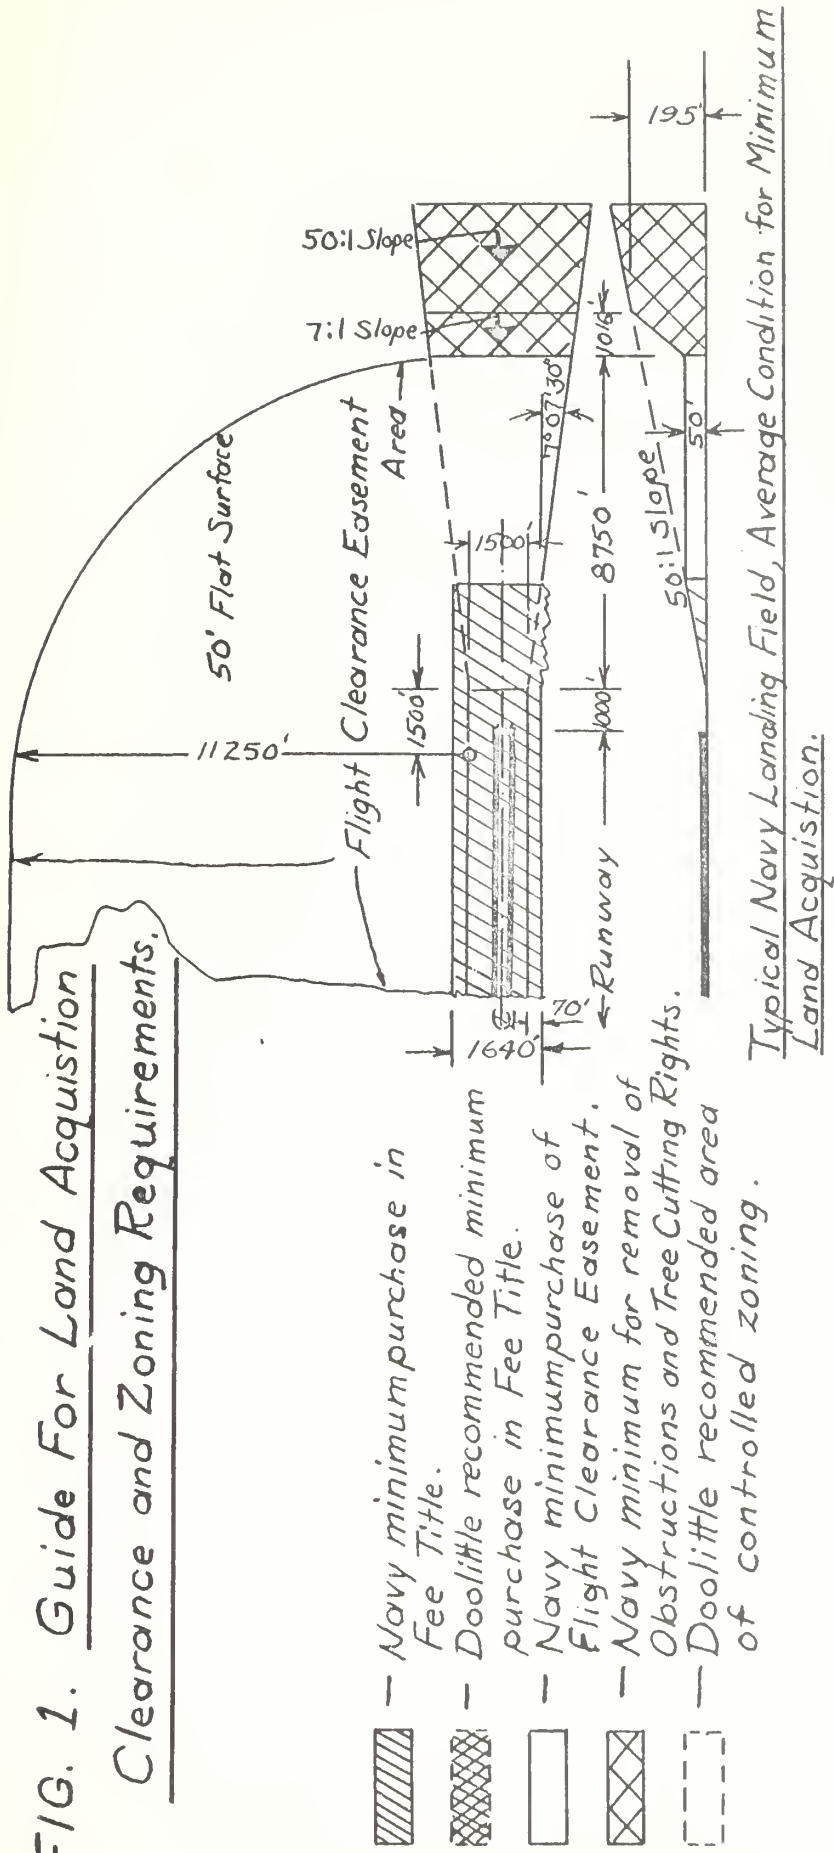 FIG. 1. Guide For Land Acquistion
Clearance and Zoning Requirements.
— Navy minimum purchase in
Fee Title.
— Doolittle recommended minimum
purchase in Fee Title.
— Navy minimum purchase of
Flight Clearance Easement.
— Navy minimum for removal of
Obstructions and Tree Cutting Rights.
— Doolittle recommended area
of controlled zoning.
50' Flat Surface
Flight Clearance Easement
Area
11250'
1500'
50:1 Slope
7:1 Slope
1500'
7°07'30"
1016'
8750'
1000'
Runway
1640'
70'
50:1 Slope
50'
195'
Typical Navy Landing Field, Average Condition for Minimum
Land Acquistion.